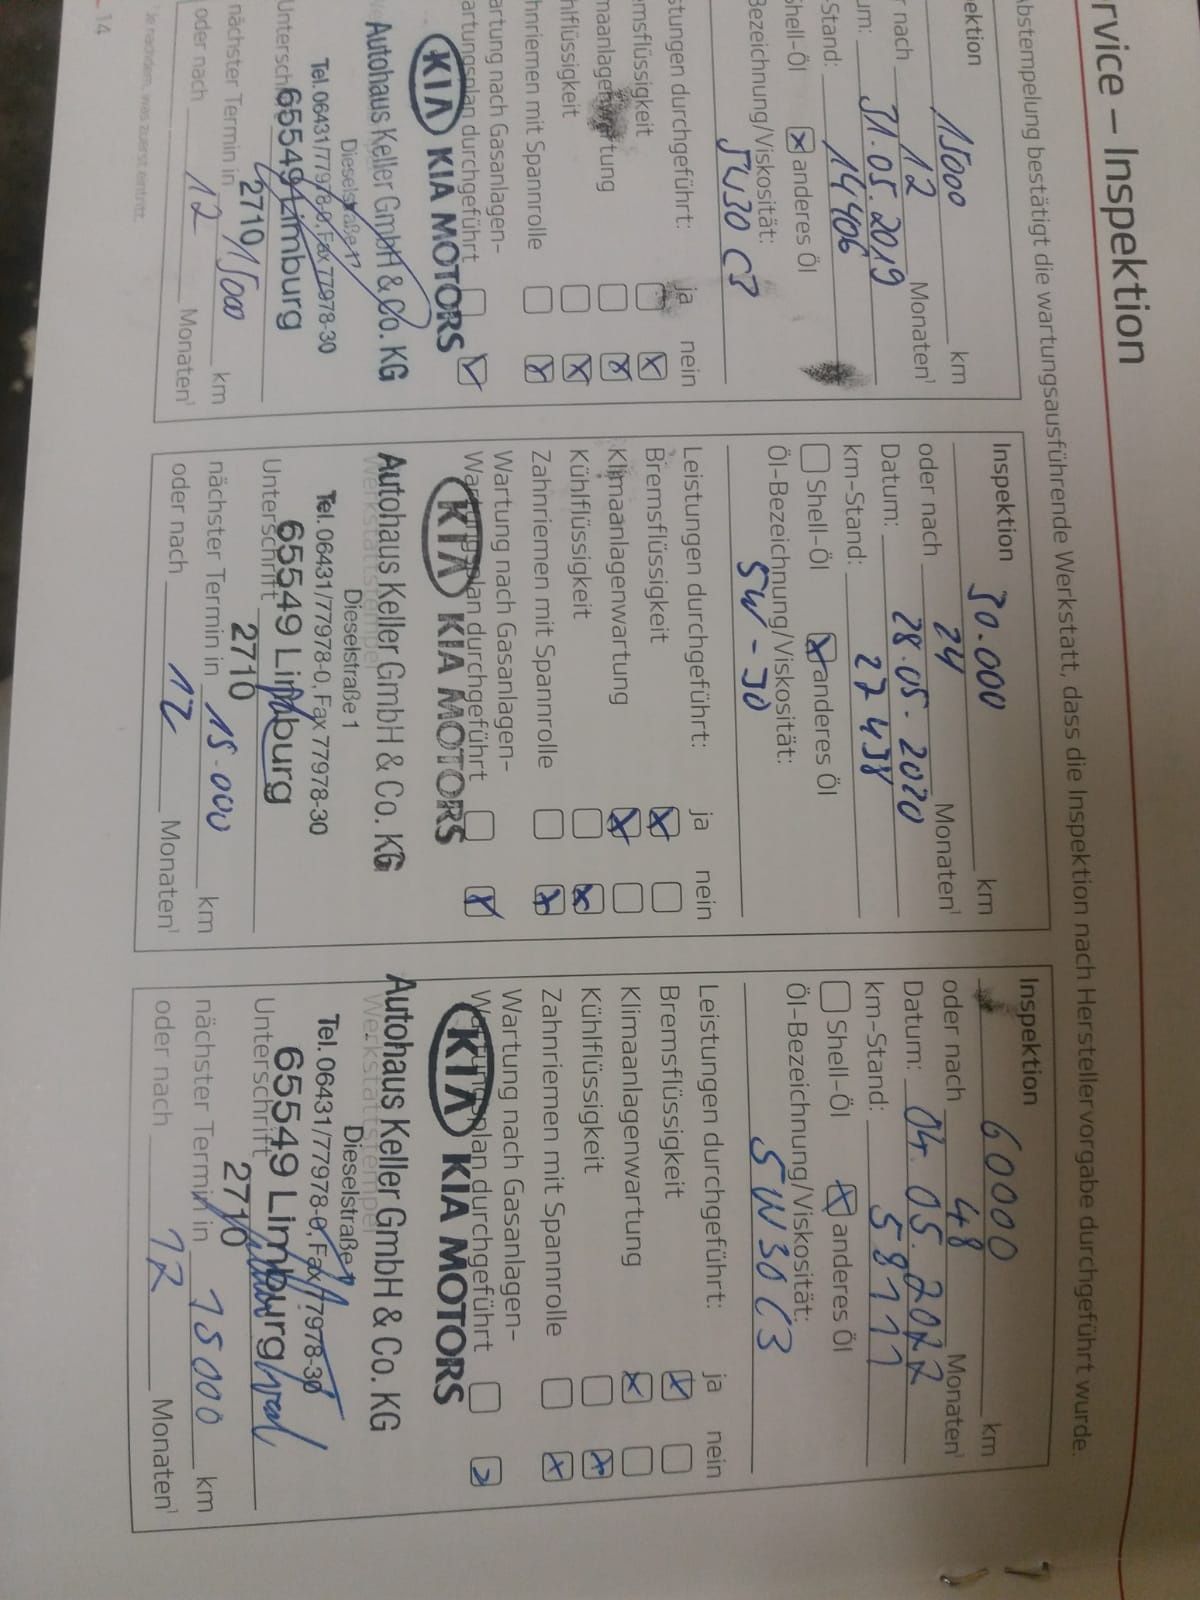 rvice – Inspektion
Abstempelung bestätigt die wartungsausführende Werkstatt, dass die Inspektion nach Herstellervorgabe durchgeführt wurde.
ektion
15000 km
r nach 12 Monaten¹
um: 31.05.2019
-Stand: 14406
hell-Öl x anderes Öl
Bezeichnung/Viskosität:
5W30 C3
stungen durchgeführt: ja nein
emsflüssigkeit x
maanlagenwartung x
hlflüssigkeit x
hnriemen mit Spannrolle x
artung nach Gasanlagen-
artungsplan durchgeführt
KIA KIA MOTORS
Autohaus Keller GmbH & Co. KG
Dieselstraße 1
Tel. 06431/77978-0, Fax 77978-30
65549 Limburg
Unterschr
2710
nächster Termin in 15000 km
oder nach 12 Monaten¹
¹Je nachdem, was zuerst eintritt.
14
Inspektion
30.000 km
oder nach 24 Monaten¹
Datum: 28.05.2020
km-Stand: 27438
Shell-Öl x anderes Öl
Öl-Bezeichnung/Viskosität:
5W-30
Leistungen durchgeführt: ja nein
Bremsflüssigkeit x
Klimaanlagenwartung x
Kühlflüssigkeit x
Zahnriemen mit Spannrolle x
Wartung nach Gasanlagen-
Wartungsplan durchgeführt x
KIA KIA MOTORS
Autohaus Keller GmbH & Co. KG
Werkstattstempel
Dieselstraße 1
Tel. 06431/77978-0, Fax 77978-30
65549 Limburg
Unterschrift
2710
nächster Termin in 15.000 km
oder nach 12 Monaten¹
Inspektion
60000 km
oder nach 48 Monaten¹
Datum: 04.05.2022
km-Stand: 59111
Shell-Öl x anderes Öl
Öl-Bezeichnung/Viskosität:
5W30 C3
Leistungen durchgeführt: ja nein
Bremsflüssigkeit x
Klimaanlagenwartung x
Kühlflüssigkeit x
Zahnriemen mit Spannrolle x
Wartung nach Gasanlagen-
Wartungsplan durchgeführt
KIA KIA MOTORS
Autohaus Keller GmbH & Co. KG
Werkstattstempel
Dieselstraße 1
Tel. 06431/77978-0, Fax 77978-30
65549 Limburg
Unterschrift
2710
nächster Termin in 15000 km
oder nach 12 Monaten¹